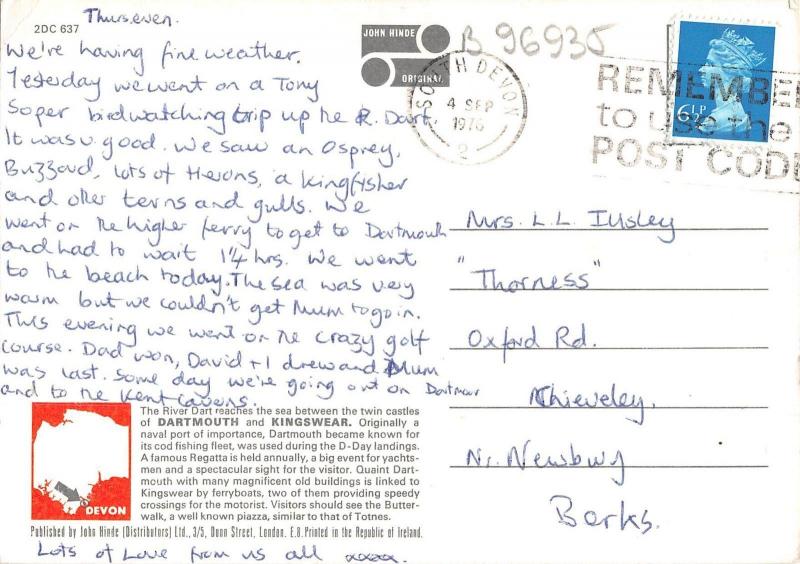 Thurs even.
2DC 637
We're having fine weather.
Yesterday we went on a Tony
Soper birdwatching trip up the R. Dart.
It was v. good. We saw an Osprey,
Buzzard, lots of Herons, a kingfisher
and other terns and gulls. We
went on the higher ferry to get to Dartmouth
and had to wait 1¼ hrs. We went
to the beach today. The sea was very
warm but we couldn't get Mum to go in.
This evening we went on the crazy golf
course. Dad won, David + I drew and Mum
was last. Some day we're going out on Dartmoor
and to the Kent Caverns.
JOHN HINDE
ORIGINAL
B 96935
SOUTH DEVON
4 SEP
1976
2
6½P
REMEMBER
to use the
POST CODE
Mrs. L. L. Insley
"Thorness"
Oxford Rd.
Chieveley,
Nr. Newbury
Berks.
DEVON
The River Dart reaches the sea between the twin castles
of DARTMOUTH and KINGSWEAR. Originally a
naval port of importance, Dartmouth became known for
its cod fishing fleet, was used during the D-Day landings.
A famous Regatta is held annually, a big event for yachts-
men and a spectacular sight for the visitor. Quaint Dart-
mouth with many magnificent old buildings is linked to
Kingswear by ferryboats, two of them providing speedy
crossings for the motorist. Visitors should see the Butter-
walk, a well known piazza, similar to that of Totnes.
Published by John Hinde (Distributors) Ltd., 3/5, Dunn Street, London. E.8. Printed in the Republic of Ireland.
Lots of Love from us all xxxxx.